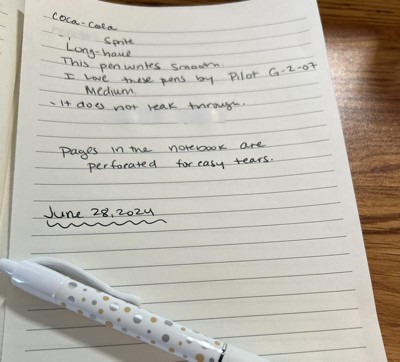 Coca-Cola
Sprite
Long-haul
This pen writes smooth.
I love these pens by Pilot G-2-07
Medium.
- It does not leak through.
Pages in the notebook are
perforated for easy tears.
June 28, 2024